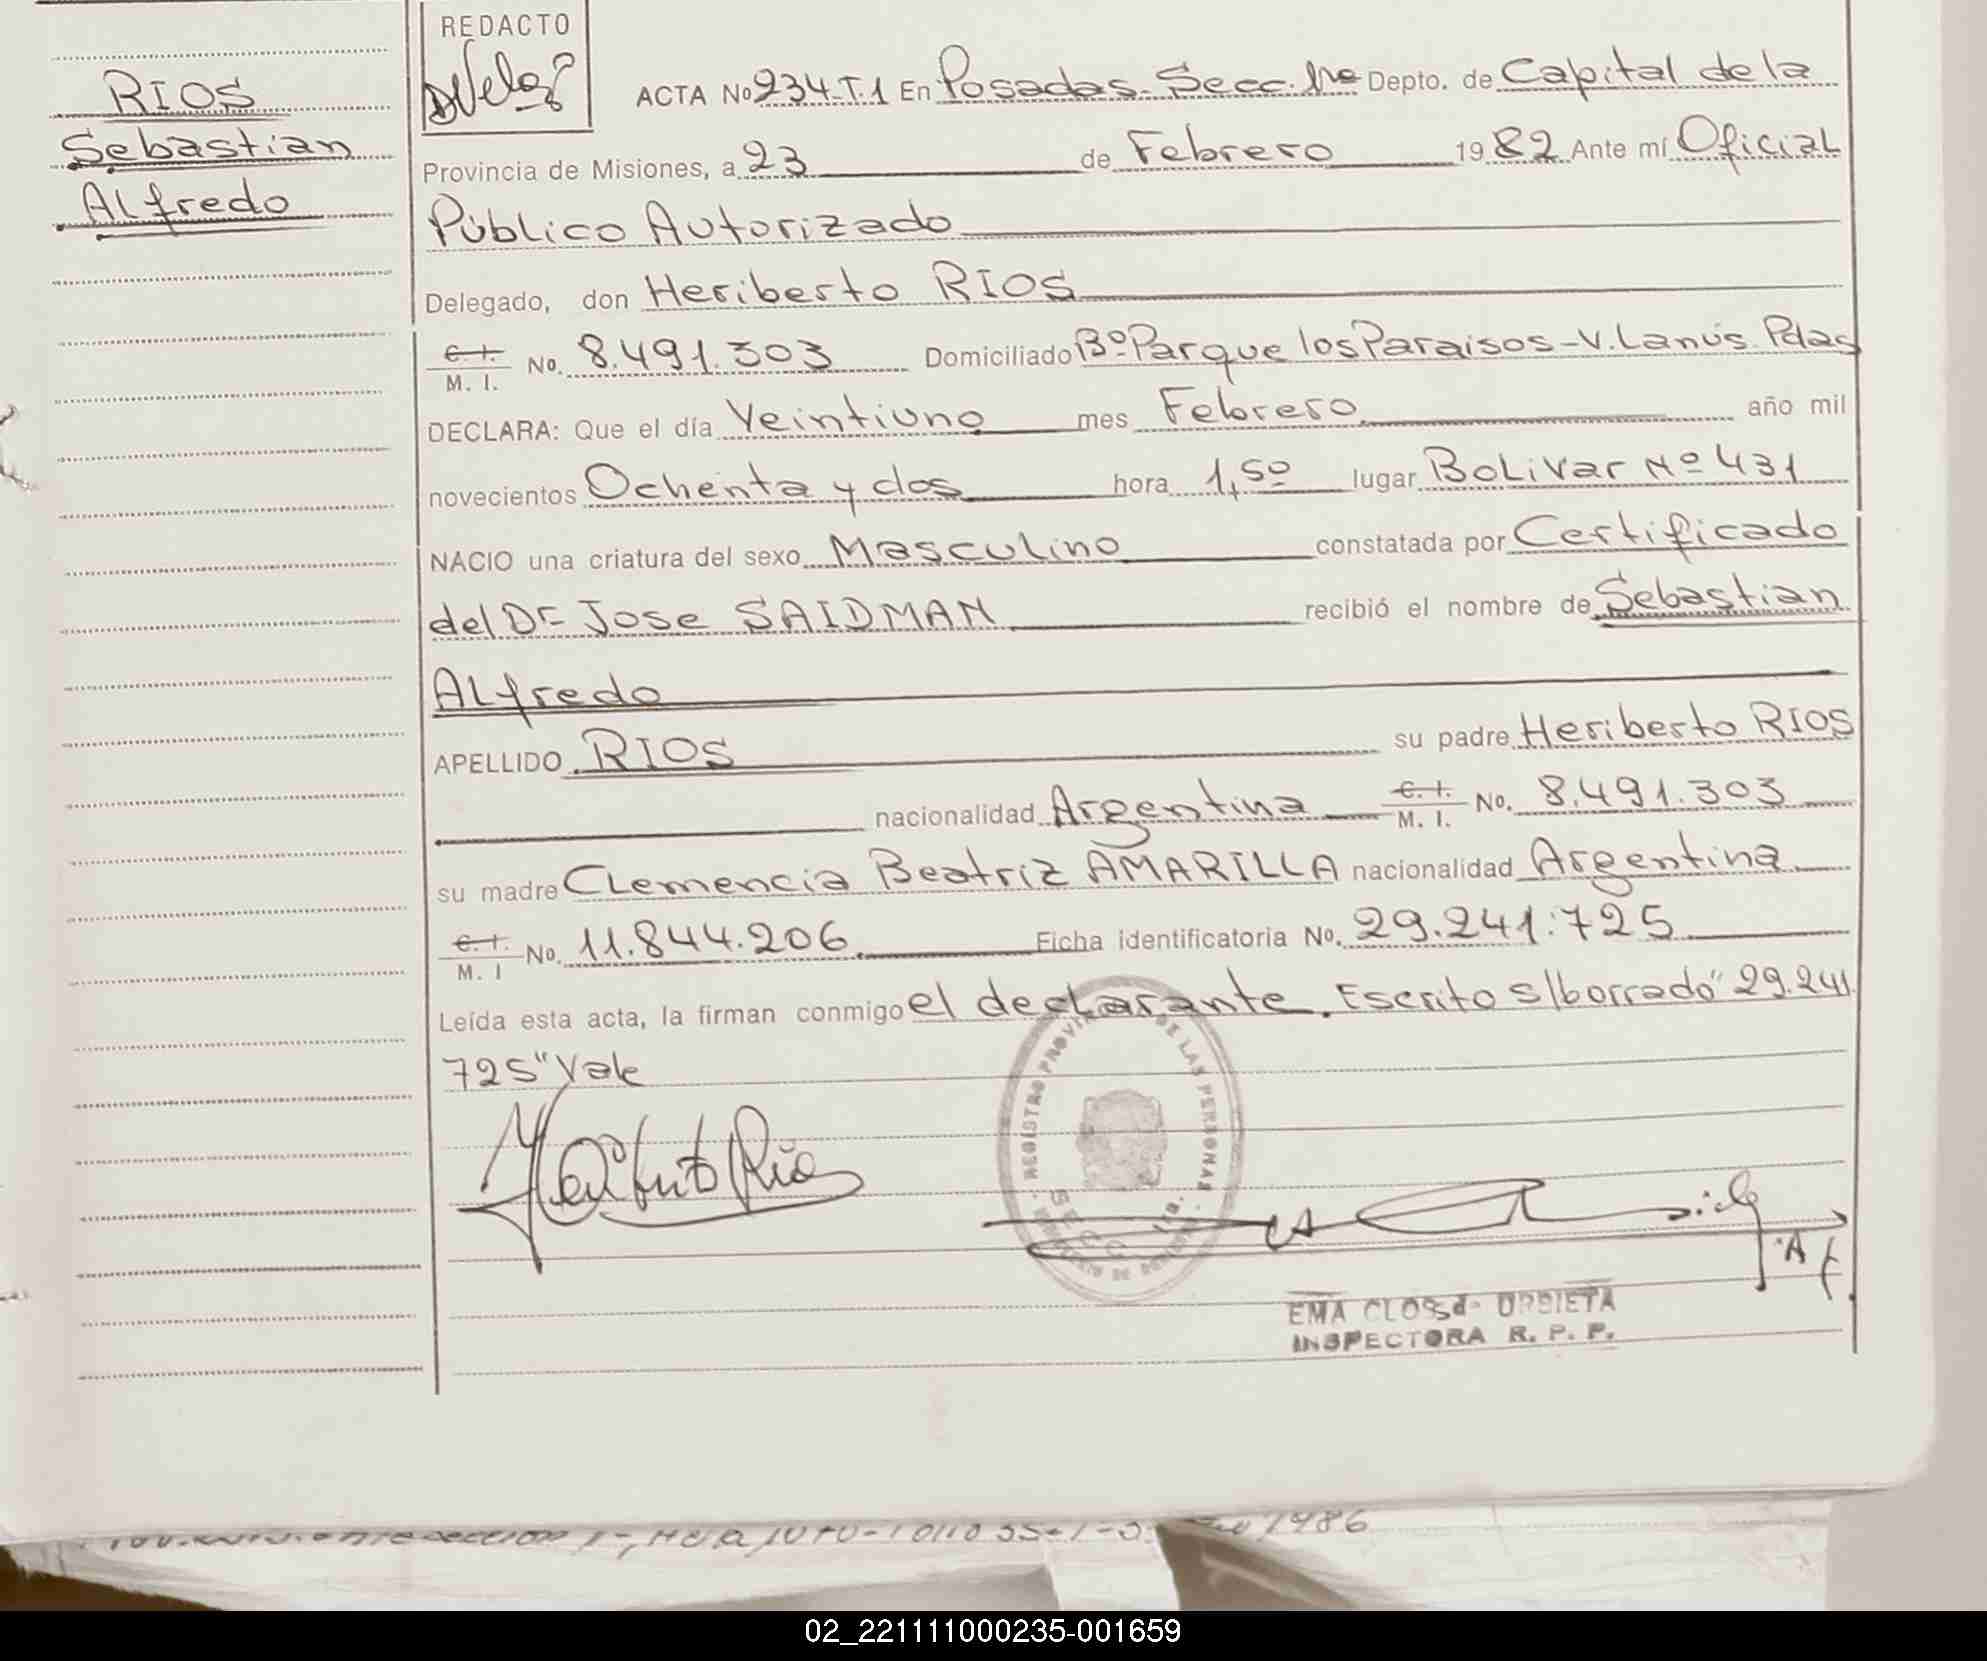 RIOS
Sebastian
Alfredo
REDACTO
ACTA No 234-T.1 En Posadas-Secc.1ra Depto. de Capital de la
Provincia de Misiones, a 23 de Febrero 1982 Ante mí Oficial
Público Autorizado
Delegado, don Heriberto RIOS
C. I. M. I. No. 8.491.303 Domiciliado Bº Parque los Paraisos-V. Lanús. Pdas
DECLARA: Que el día Veintiuno mes Febrero año mil
novecientos Ochenta y dos hora 1,50 lugar Bolivar Nº 431
NACIO una criatura del sexo Masculino constatada por Certificado
del Dr Jose SAIDMAN recibió el nombre de Sebastian
Alfredo
APELLIDO RIOS su padre Heriberto RIOS
nacionalidad Argentina C. I. M. I. No. 8.491.303
su madre Clemencia Beatriz AMARILLA nacionalidad Argentina
C. I. M. I No. 11.844.206 Ficha identificatoria No. 29.241.725
Leída esta acta, la firman conmigo el declarante. Escrito s/borrado "29.241.
725" Vale
Heriberto Rios
REGISTRO PROVINCIAL DE LAS PERSONAS
SECC. 1ra.
EMA CLOSS de URBIETA
INSPECTORA R. P. P.
1986
02_221111000235-001659